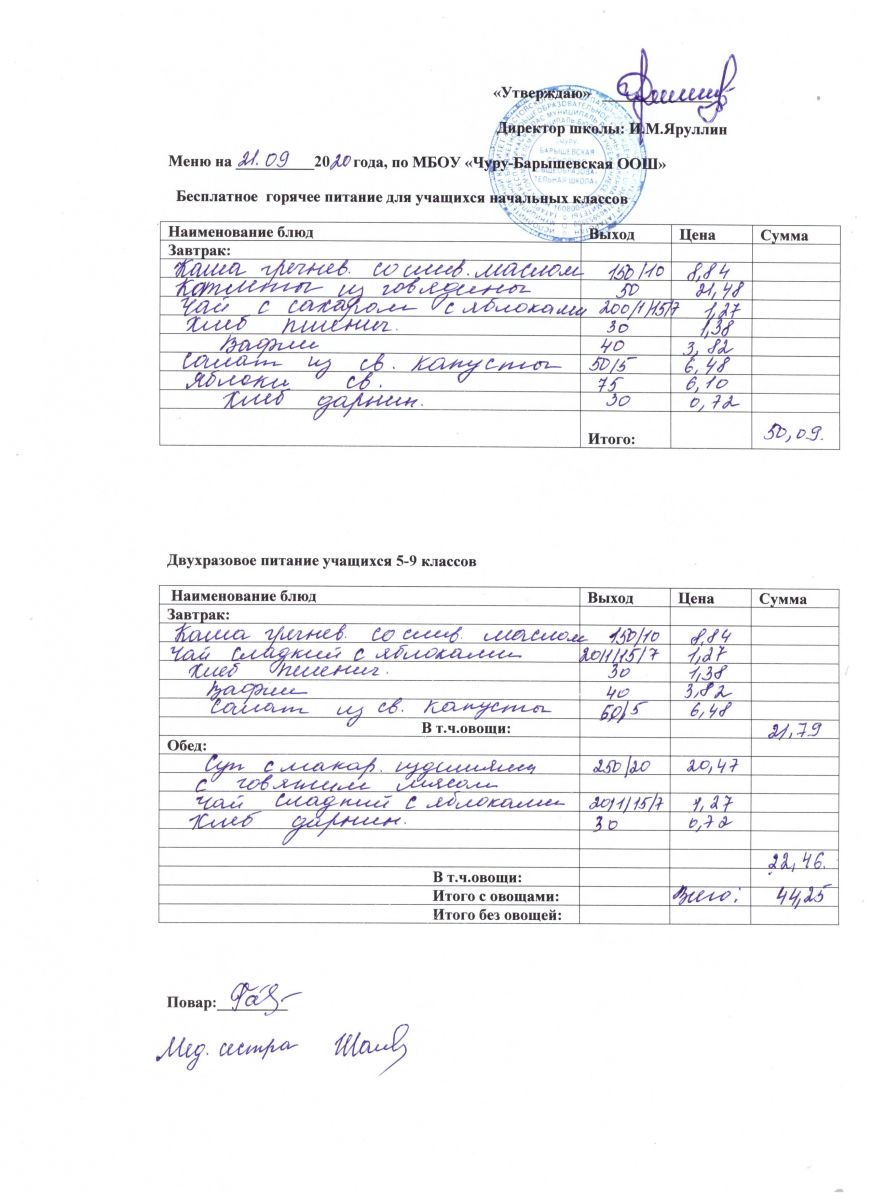 «Утверждаю»
Директор школы: И.М.Яруллин
Меню на 21.09 2020 года, по МБОУ «Чуру-Барышевская ООШ»
Бесплатное горячее питание для учащихся начальных классов
Наименование блюд Выход Цена Сумма
Завтрак:
Каша гречнев. со слив. маслом 150/10 8,84
Котлеты из говядины 50 21,48
Чай с сахаром с яблоками 200/1/15/7 1,27
Хлеб пшенич. 30 1,38
Вафли 40 3,82
Салат из св. капусты 50/5 6,48
Яблоки св. 75 6,10
Хлеб дарниц. 30 0,72
Итого: 50,09.
Двухразовое питание учащихся 5-9 классов
Наименование блюд Выход Цена Сумма
Завтрак:
Каша гречнев. со слив. маслом 150/10 8,84
Чай сладкий с яблоками 20/1/15/7 1,27
Хлеб пшенич. 30 1,38
Вафли 40 3,82
Салат из св. капусты 60/5 6,48
В т.ч.овощи: 21,79
Обед:
Суп с макар. изделиями 250/20 20,47
с говяжьим мясом
Чай сладкий с яблоками 20/1/15/7 1,27
Хлеб дарниц. 30 0,72
22,46.
В т.ч.овощи:
Итого с овощами: Всего: 44,25
Итого без овощей:
Повар:
Мед. сестра